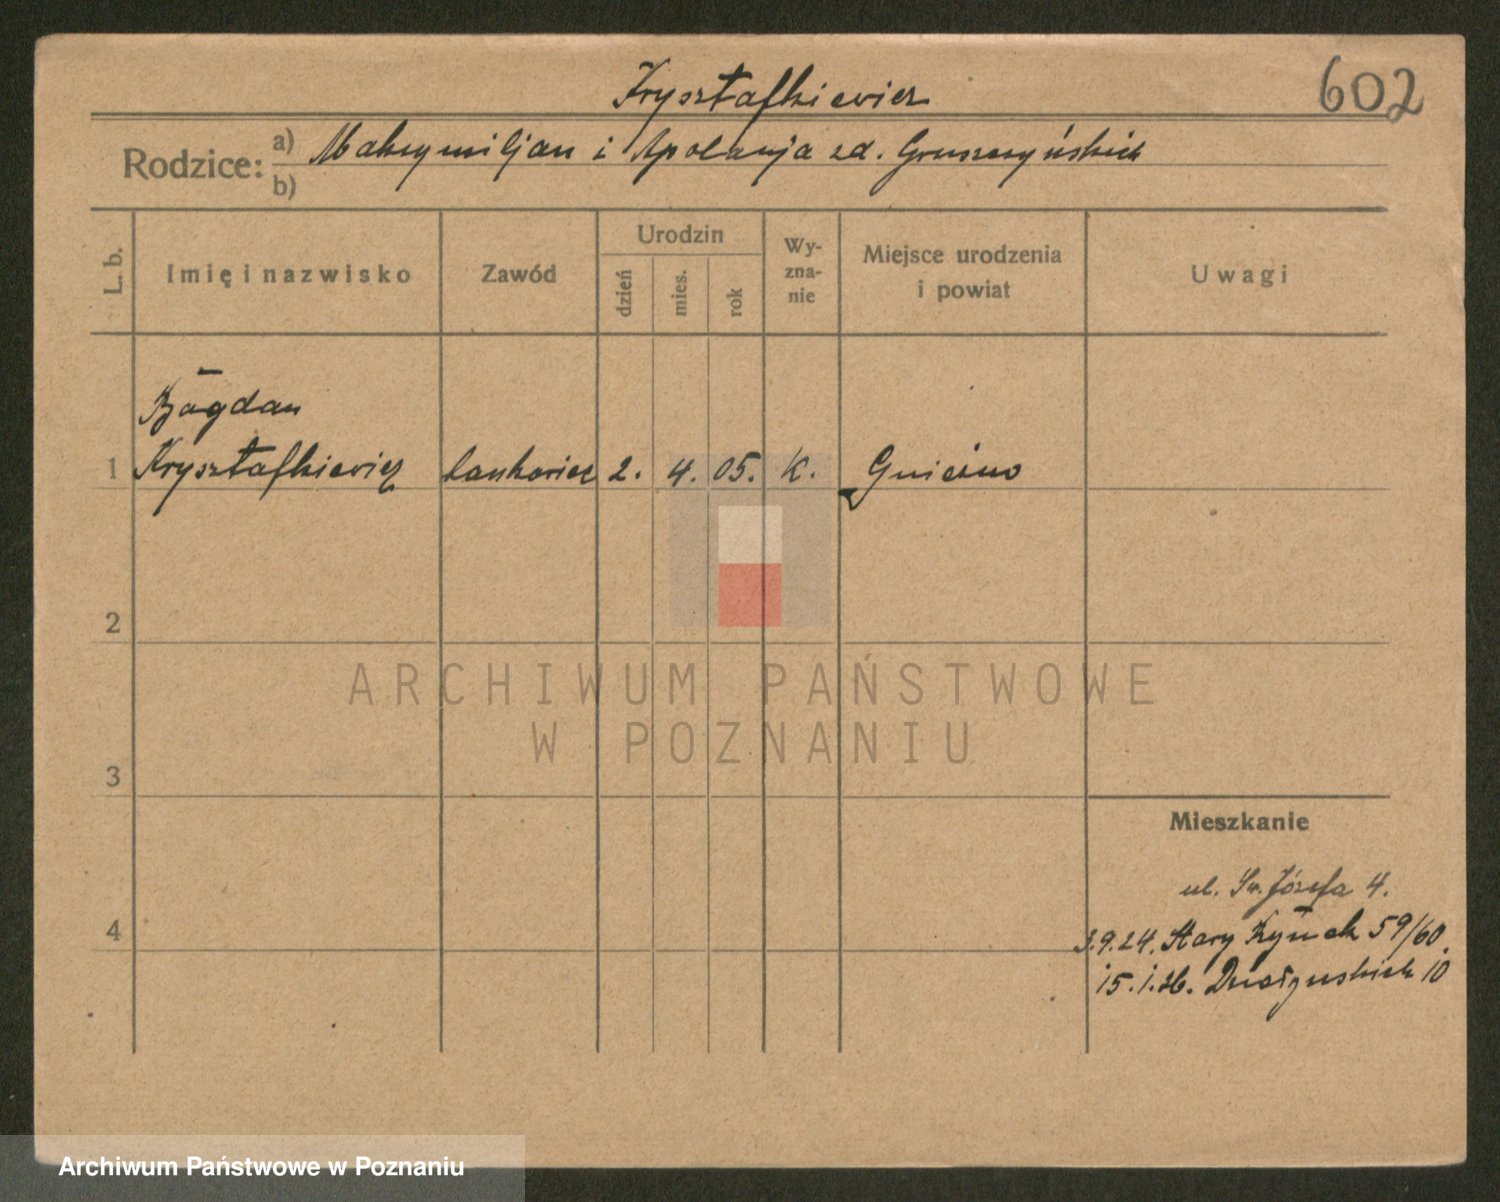 602
Krysztafkiewicz
Rodzice: a) Maksymiljan i Apolonja zd. Gruszczyńskich
b)
L. b. Imię i nazwisko Zawód Urodzin dzień mies. rok Wy-zna-nie Miejsce urodzenia i powiat Uwagi
Bogdan
1 Krysztafkiewicz bankowiec 2. 4. 05. K. Gniezno
2
ARCHIWUM PAŃSTWOWE
W POZNANIU
3
Mieszkanie
ul. Św. Józefa 4.
4
3.9.24. Stary Rynek 59/60.
15.1.26. Działyńskich 10
Archiwum Państwowe w Poznaniu